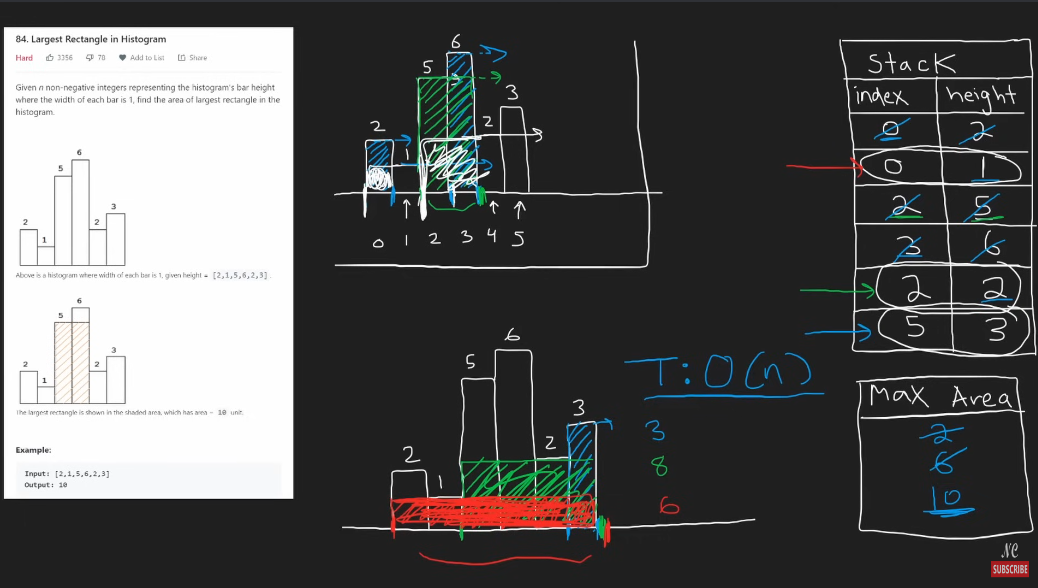 84. Largest Rectangle in Histogram
Hard 3356 78 Add to List Share
Given n non-negative integers representing the histogram's bar height
where the width of each bar is 1, find the area of largest rectangle in the
histogram.
2 1 5 6 2 3
Above is a histogram where width of each bar is 1, given height = [2,1,5,6,2,3] .
2 1 5 6 2 3
The largest rectangle is shown in the shaded area, which has area = 10 unit.
Example:
Input: [2,1,5,6,2,3]
Output: 10
2 1 5 6 2 3
0 1 2 3 4 5
2 1 5 6 2 3
T: O(n)
3
8
6
Stack
index height
0 2
0 1
2 5
3 6
2 2
5 3
Max Area
2
6
10
NC
SUBSCRIBE